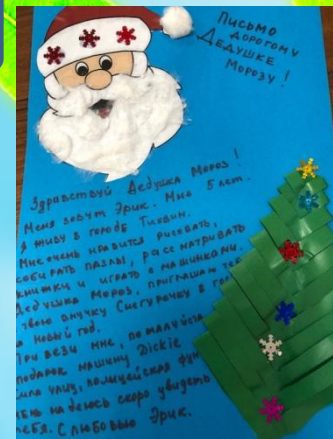 Письмо
дорогому
Дедушке
Морозу!
Здравствуй Дедушка Мороз!
Меня зовут Эрик. Мне 5 лет.
Я живу в городе Тихвин.
Мне очень нравится рисовать,
собирать пазлы, рассматривать
книжки и играть с машинками.
Дедушка Мороз, приглашаю
твою внучку Снегурочку в
Новый год.
Привези мне, пожалуйста
подарок машину Dickie
улиц, полицейская
надеюсь скоро увидеть
тебя. С любовью Эрик.